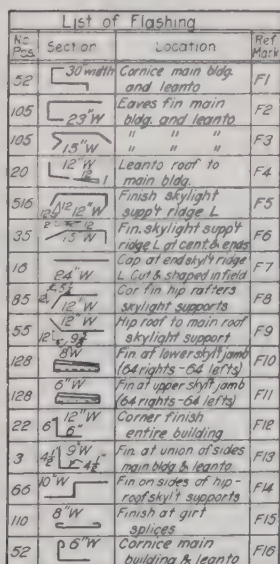 List of Flashing
No Pcs. Section Location Ref Mark
52 30" width Cornice main bldg. and leanto F1
105 23" W Eaves fin main bldg. and leanto F2
105 15" W " " " " " " F3
20 12" W 12 1 Leanto roof to main bldg. F4
516 12 12 12" W Finish skylight supp't ridge L F5
35 2" 12 15" W Fin. skylight supp't ridge L at cent. & ends F6
16 24" W Cap at end sky't ridge L Cut & shaped in field F7
85 12" W Cor fin hip rafters skylight supports F8
55 12" W 12 Hip roof to main roof skylight support F9
128 8" W Fin at lower skyl't jamb (64 rights-64 lefts) F10
128 6" W Fin at upper skyl't jamb (64 rights-64 lefts) F11
22 6" 12" W 6" Corner finish entire building F12
3 4½" 9" W 4½" Fin. at union of sides main bldg & leanto F13
66 10" W Fin on sides of hip-roof skyl't supports F14
110 8" W Finish at girt splices F15
52 6" W Cornice main building & leanto F16